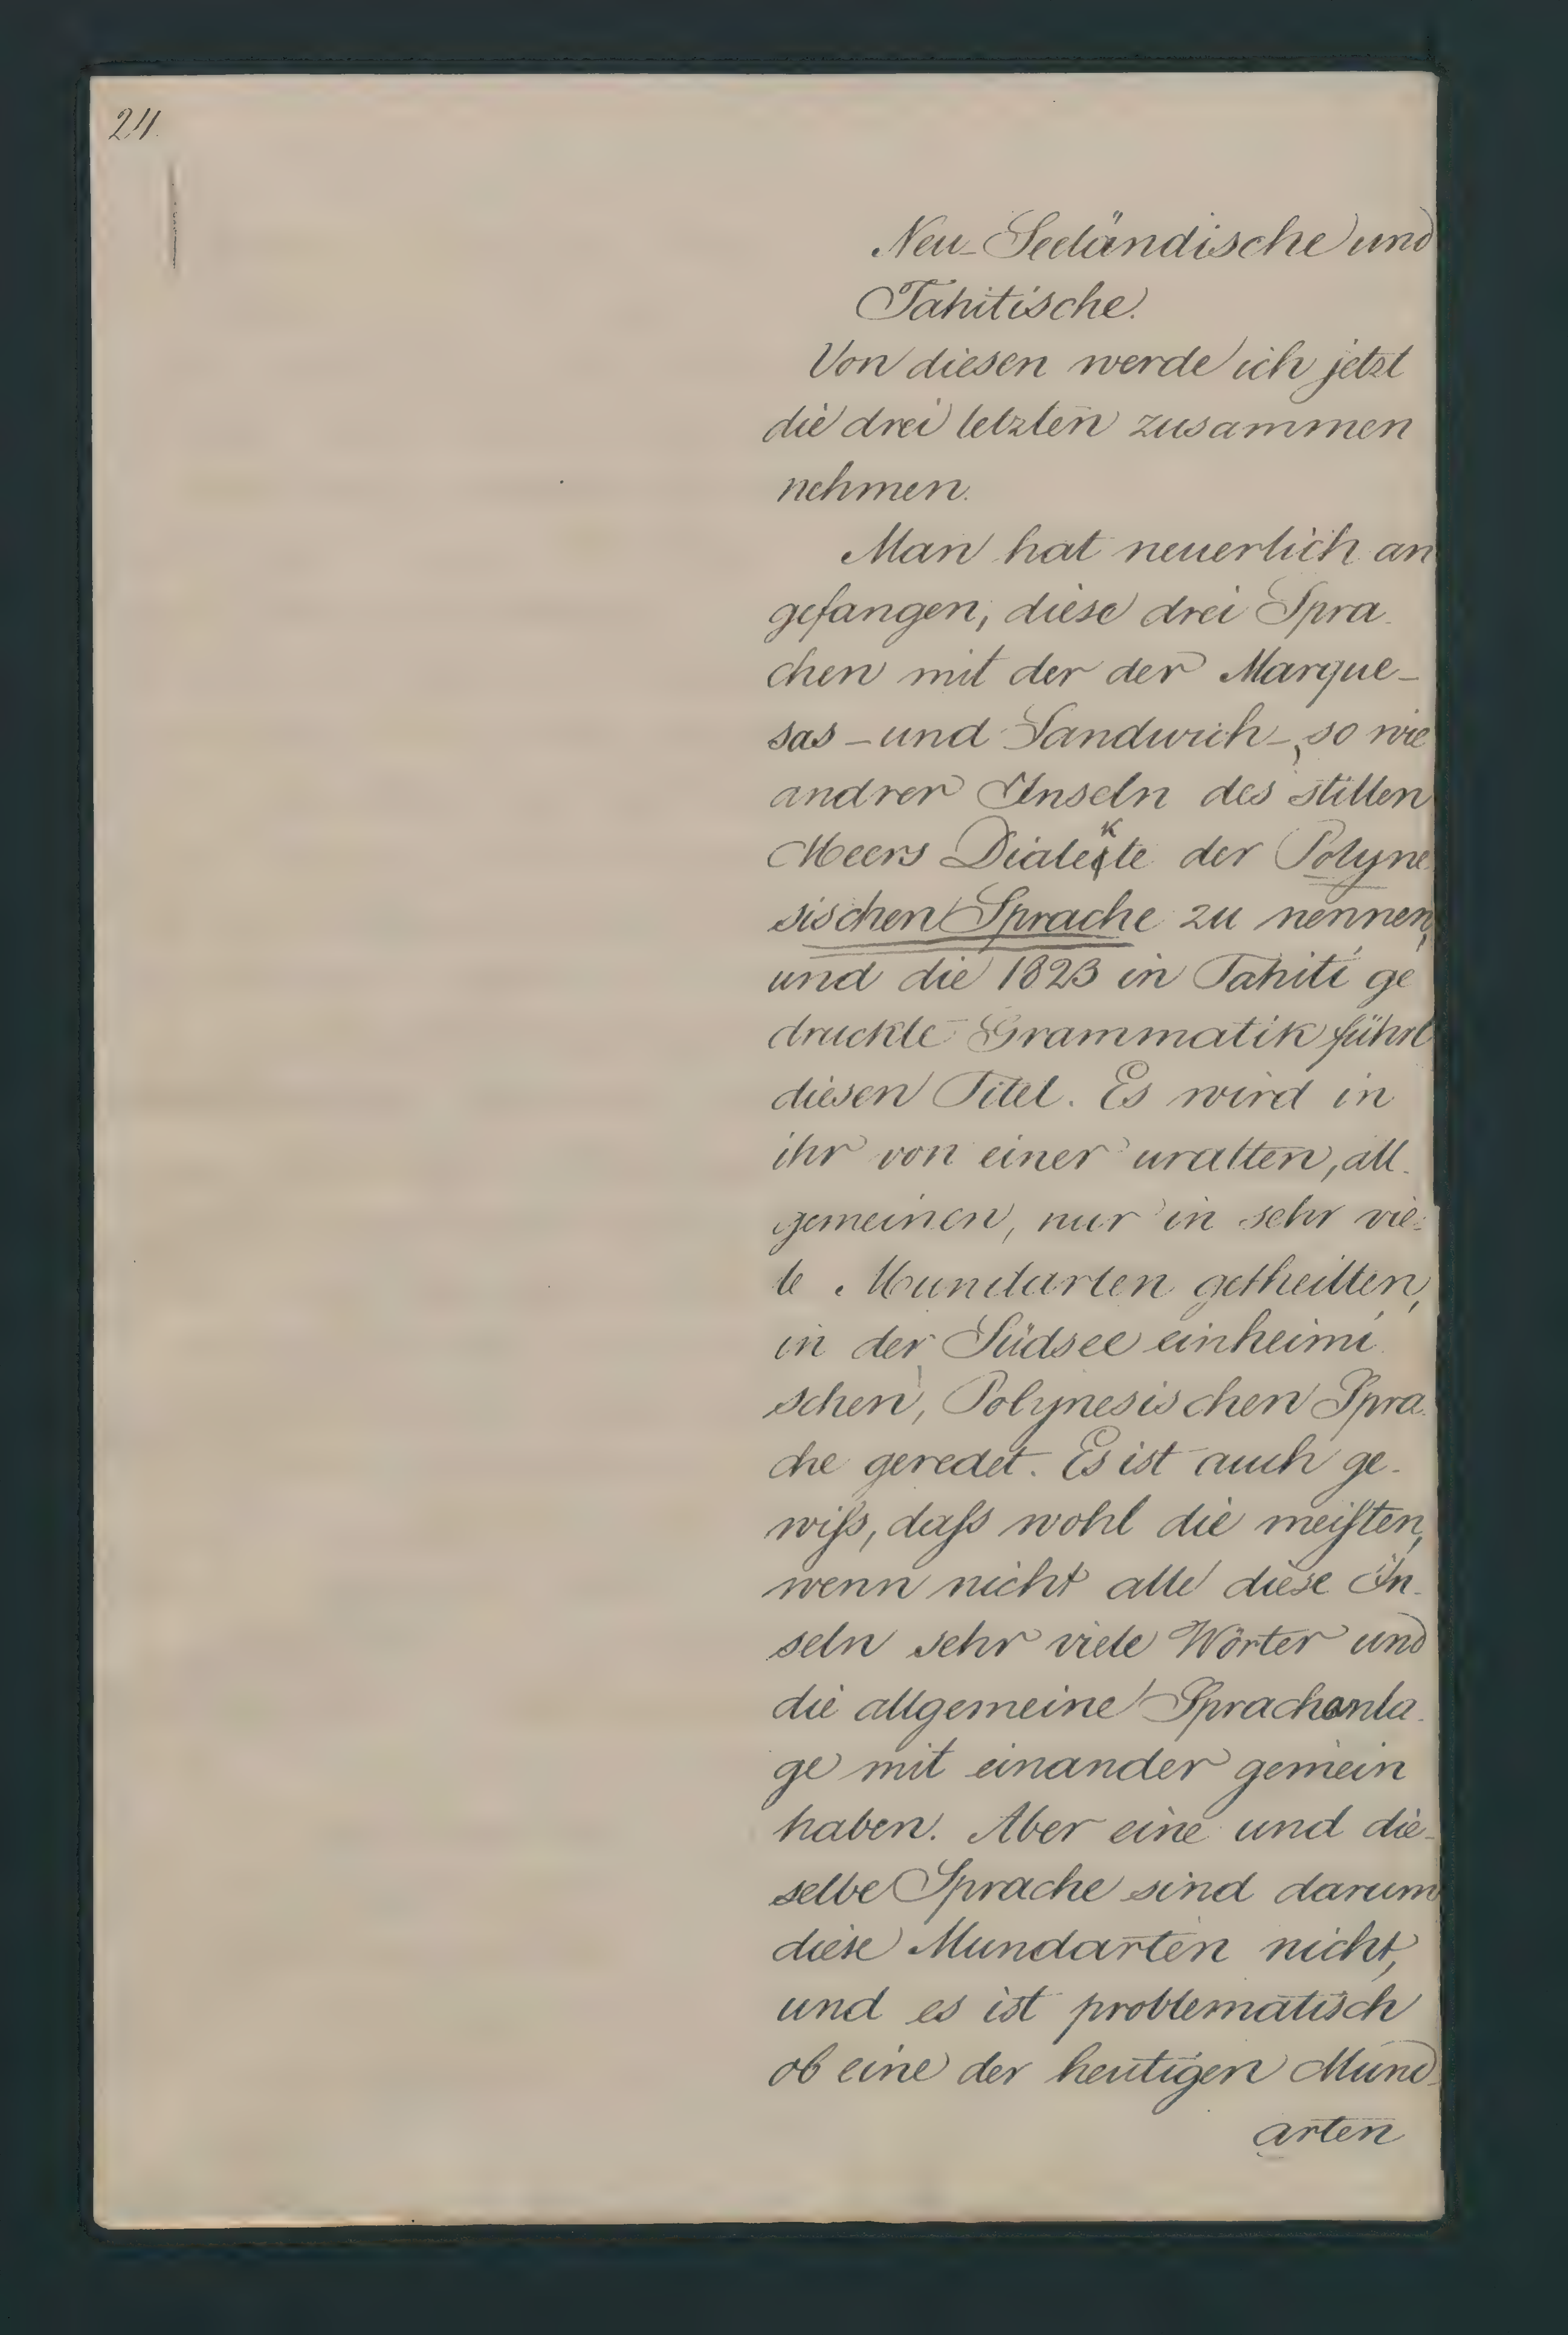 24.
Neu-Seeländische und
Tahitische.
Von diesen werde ich jetzt
die drei letzten zusammen
nehmen.
Man hat neuerlich an
gefangen, diese drei Spra-
chen mit der der Marque-
sas- und Sandwich-, so wie
andrer Inseln des stillen
Meers Dialekte der Polyne
sischen Sprache zu nennen,
und die 1823 in Tahiti ge
druckte Grammatik führt
diesen Titel. Es wird in
ihr von einer uralten, all-
gemeinen, nur in sehr vie-
le Mundarten getheilten,
in der Südsee einheimi
schen, Polynesischen Spra-
che geredet. Es ist auch ge-
wiſs, daſs wohl die meiſten,
wenn nicht alle diese In-
seln sehr viele Wörter und
die allgemeine Sprachanla-
ge mit einander gemein
haben. Aber eine und die-
selbe Sprache sind darum
diese Mundarten nicht,
und es ist problematisch
ob eine der heutigen Mund-
arten